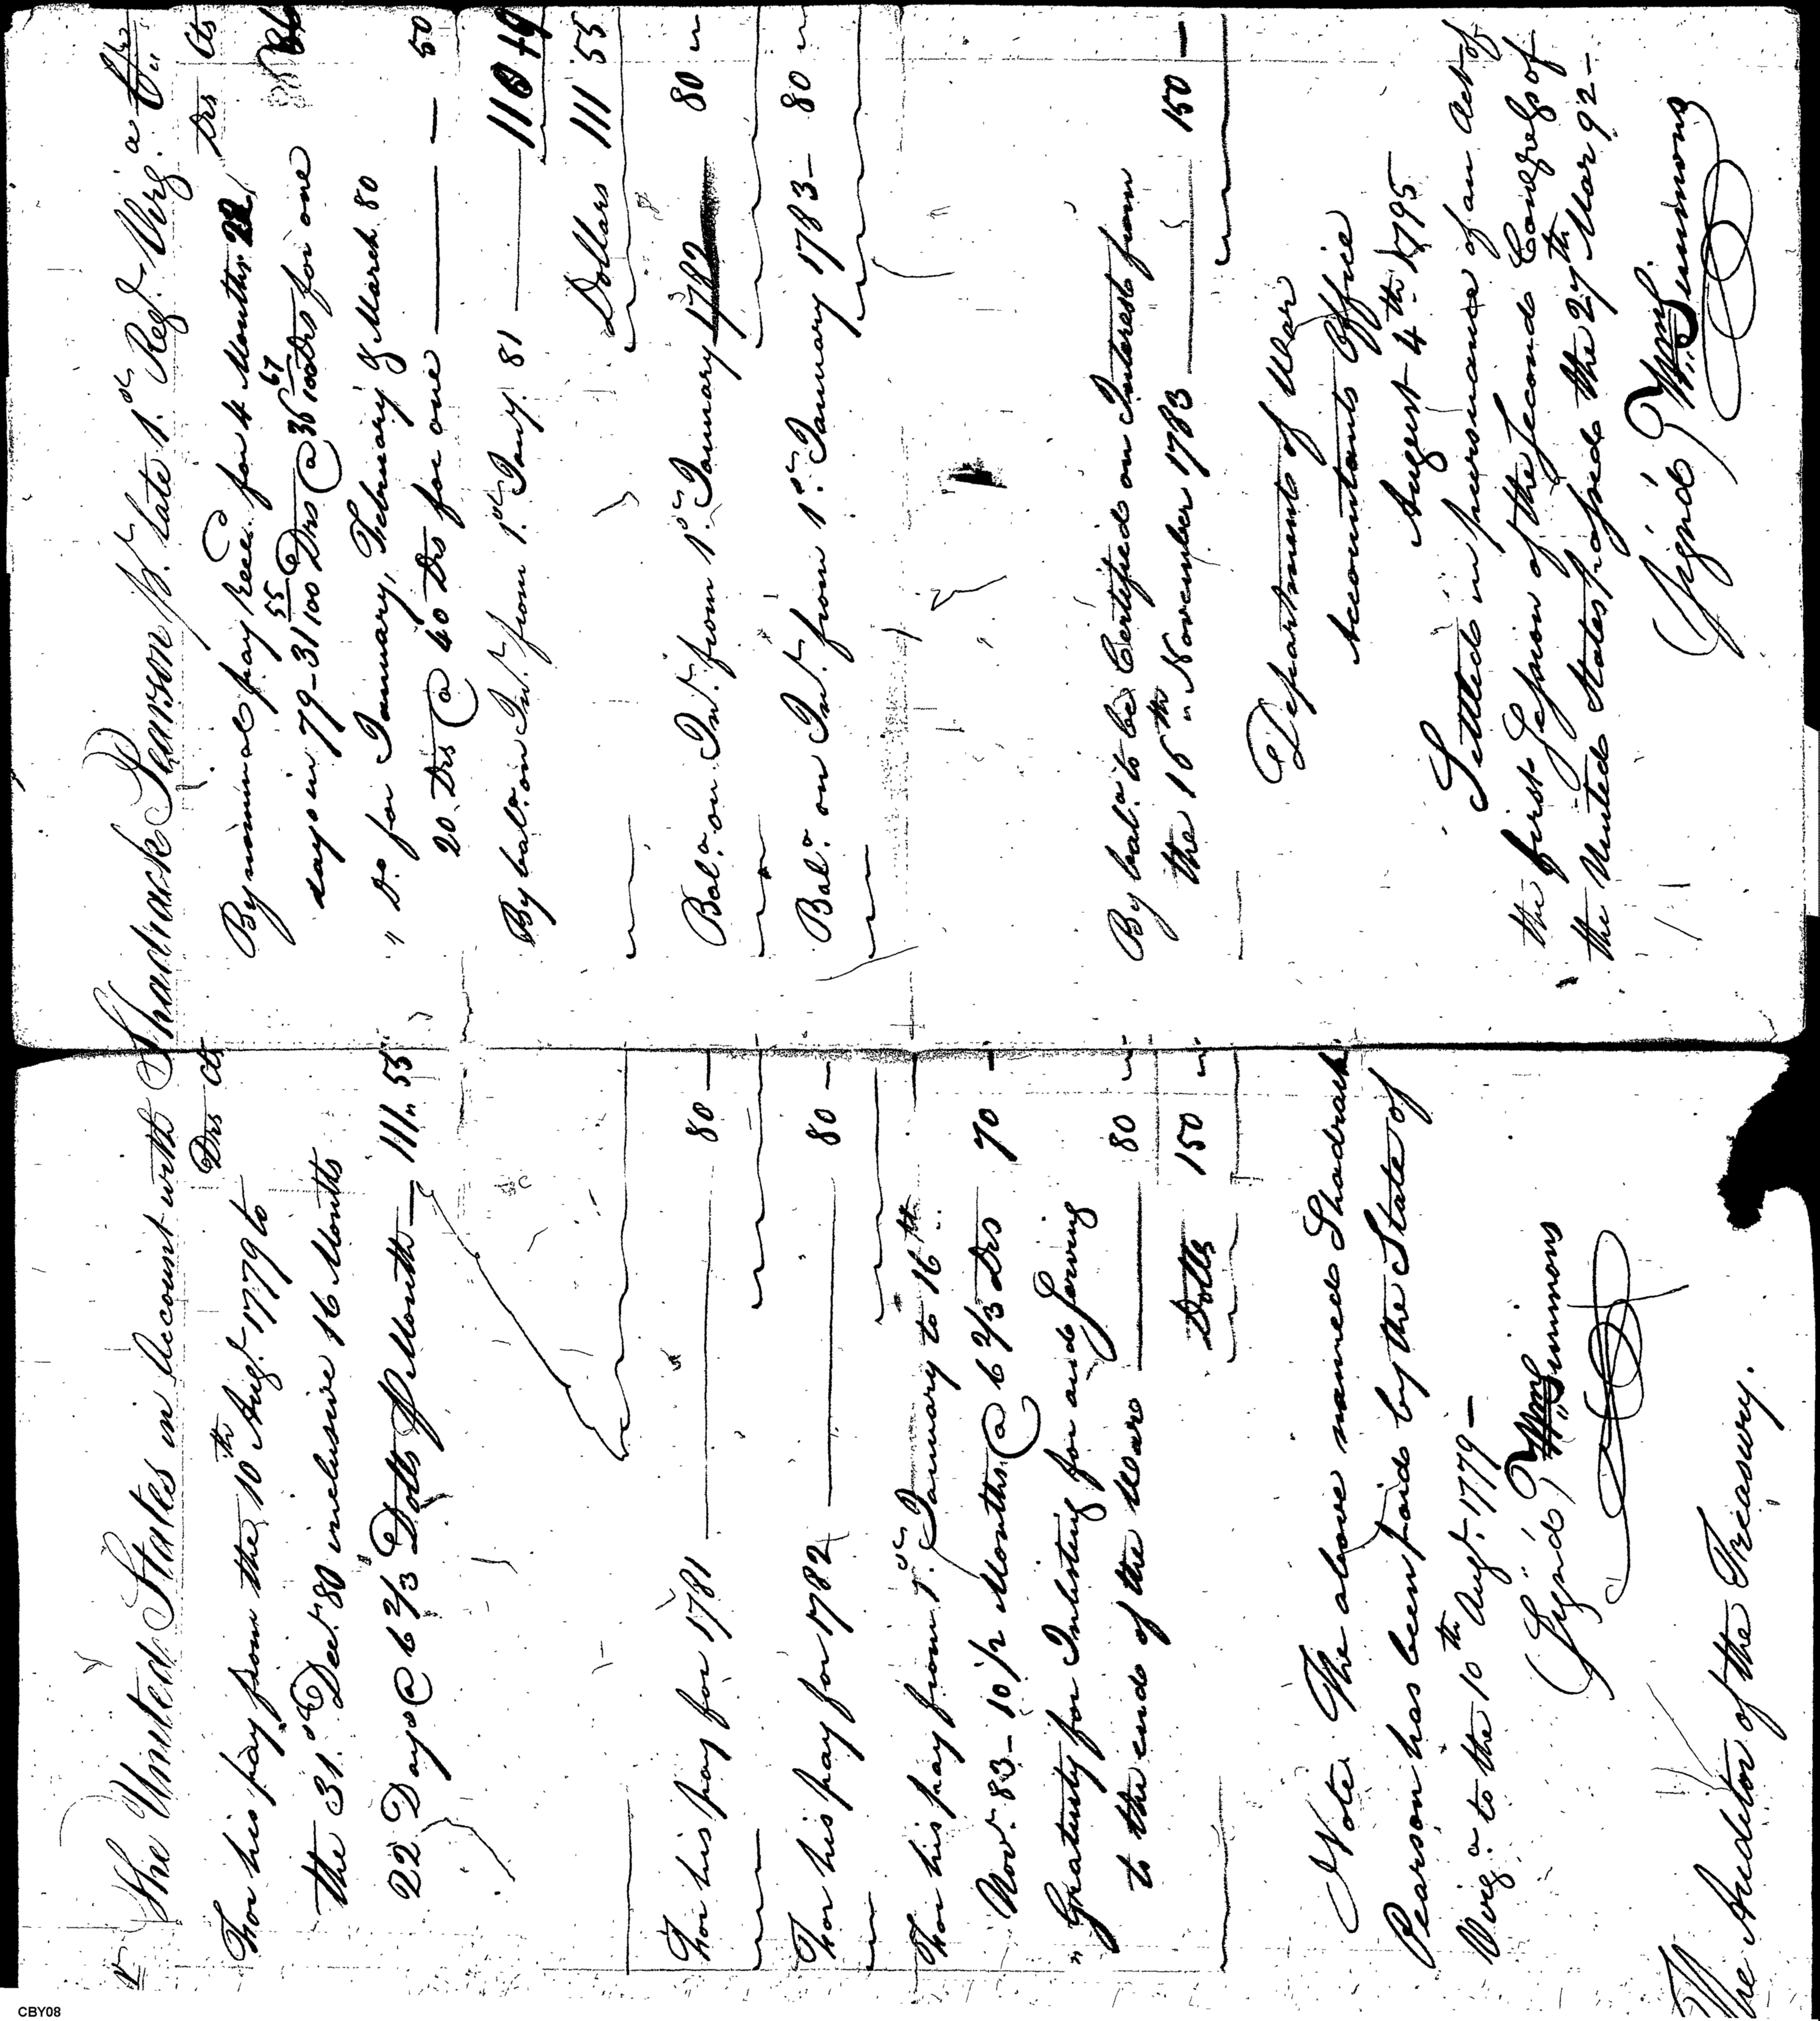 Dr The United States in Account with Shadrack Pearson Sr. late 1st Reg.t Virg.a Cr.
Drs Cts
For his pay from the 10th Aug.t 1779 to
the 31.st Dec.r 80 inclusive 16 Months
22 Days @ 6 2/3 Dolls P Month — 111" 55
For his pay for 1781 — 80 —
For his pay for 1782 — 80 —
For his pay from 1.st January to 16th
Nov.r 83 - 10 1/2 Months @ 6 2/3 Drs 70 —
" Gratuity for Inlisting for and serving
to the end of the War — 80 "
Dolls 150 "
Note The above named Shadrack
Pearson has been paid by the State of
Virg.a to the 10th Aug.t 1779 —
Sign'd, Wm Simmons
The Auditor of the Treasury.
Drs Cts
By nominal pay Rece.d for 4 Months 22
days in 79 - 31 55/100 Drs @ 36 67/100 Drs for one 86
" D.o for January, February & March 80
20 Drs @ 40 Drs for one — 50
By bal.a on Int.t from 1.st Jany. 81 — 110 19
Dollars 111 55
Bal.a on Int.t from 1.st January 1782 80 "
Bal.a on Int.t from 1.st January 1783 — 80 "
By bal.a to be Certified on Interest from
the 16th " November 1783 — 150 —
Department of War
Accountants Office
August 4th 1795
Settled in pursuance of an Act of
the first Session of the second Congress of
the United States passed the 27th Mar 92 —
Sign'd, Wm Simmons
CBY08